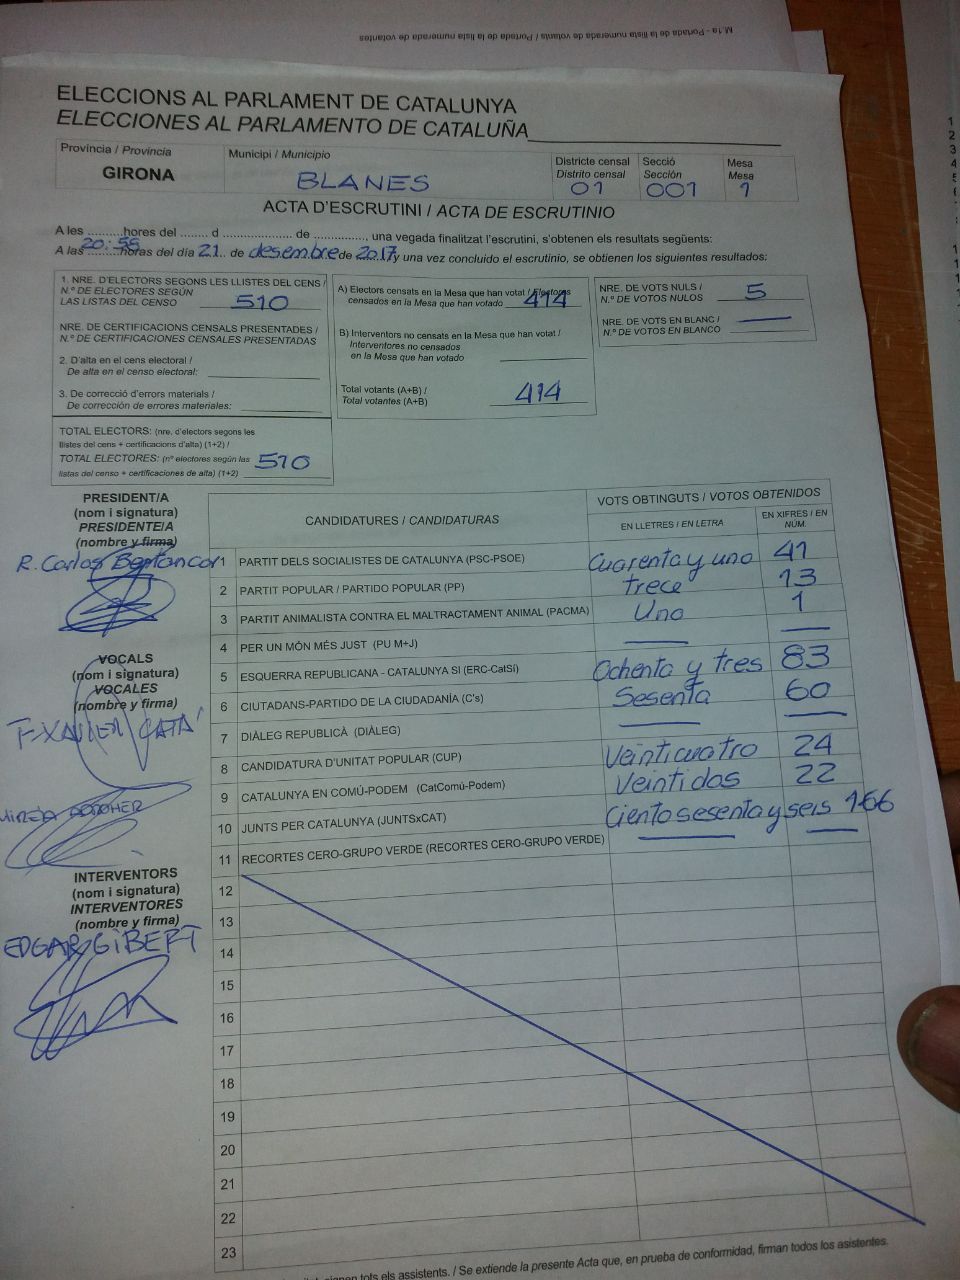 M.1a - Portada de la llista numerada de votants / Portada de la lista numerada de votantes
ELECCIONS AL PARLAMENT DE CATALUNYA
ELECCIONES AL PARLAMENTO DE CATALUÑA
Província / Provincia
GIRONA
Municipi / Municipio
BLANES
Districte censal
Distrito censal
01
Secció
Sección
001
Mesa
Mesa
1
ACTA D'ESCRUTINI / ACTA DE ESCRUTINIO
A les ..........hores del ........ d .................... de ..............., una vegada finalitzat l'escrutini, s'obtenen els resultats següents:
A las 20:55 horas del día 21 de desembre de 2017 y una vez concluido el escrutinio, se obtienen los siguientes resultados:
1. NRE. D'ELECTORS SEGONS LES LLISTES DEL CENS /
N.º DE ELECTORES SEGÚN
LAS LISTAS DEL CENSO 510
NRE. DE CERTIFICACIONS CENSALS PRESENTADES /
N.º DE CERTIFICACIONES CENSALES PRESENTADAS
2. D'alta en el cens electoral /
De alta en el censo electoral:
3. De correcció d'errors materials /
De corrección de errores materiales:
TOTAL ELECTORS: (nre. d'electors segons les
llistes del cens + certificacions d'alta) (1+2) /
TOTAL ELECTORES: (nº electores según las
listas del censo + certificaciones de alta) (1+2) 510
A) Electors censats en la Mesa que han votat / Electores
censados en la Mesa que han votado 414
B) Interventors no censats en la Mesa que han votat /
Interventores no censados
en la Mesa que han votado
Total votants (A+B) /
Total votantes (A+B) 414
NRE. DE VOTS NULS /
N.º DE VOTOS NULOS 5
NRE. DE VOTS EN BLANC /
N.º DE VOTOS EN BLANCO
PRESIDENT/A
(nom i signatura)
PRESIDENTE/A
(nombre y firma)
R. Carlos Bentancor
VOCALS
(nom i signatura)
VOCALES
(nombre y firma)
F-XAVIER CATÀ
INTERVENTORS
(nom i signatura)
INTERVENTORES
(nombre y firma)
EDGAR GIBERT
CANDIDATURES / CANDIDATURAS
VOTS OBTINGUTS / VOTOS OBTENIDOS
EN LLETRES / EN LETRA
EN XIFRES / EN NÚM.
1 PARTIT DELS SOCIALISTES DE CATALUNYA (PSC-PSOE) Cuarenta y uno 41
2 PARTIT POPULAR / PARTIDO POPULAR (PP) trece 13
3 PARTIT ANIMALISTA CONTRA EL MALTRACTAMENT ANIMAL (PACMA) Uno 1
4 PER UN MÓN MÉS JUST (PU M+J)
5 ESQUERRA REPUBLICANA - CATALUNYA SI (ERC-CatSí) Ochenta y tres 83
6 CIUTADANS-PARTIDO DE LA CIUDADANÍA (C's) Sesenta 60
7 DIÀLEG REPUBLICÀ (DIÀLEG)
8 CANDIDATURA D'UNITAT POPULAR (CUP) Veinticuatro 24
9 CATALUNYA EN COMÚ-PODEM (CatComú-Podem) Veintidos 22
10 JUNTS PER CATALUNYA (JUNTSxCAT) Ciento sesenta y seis 166
11 RECORTES CERO-GRUPO VERDE (RECORTES CERO-GRUPO VERDE)
12
13
14
15
16
17
18
19
20
21
22
23
signen tots els assistents. / Se extiende la presente Acta que, en prueba de conformidad, firman todos los asistentes.